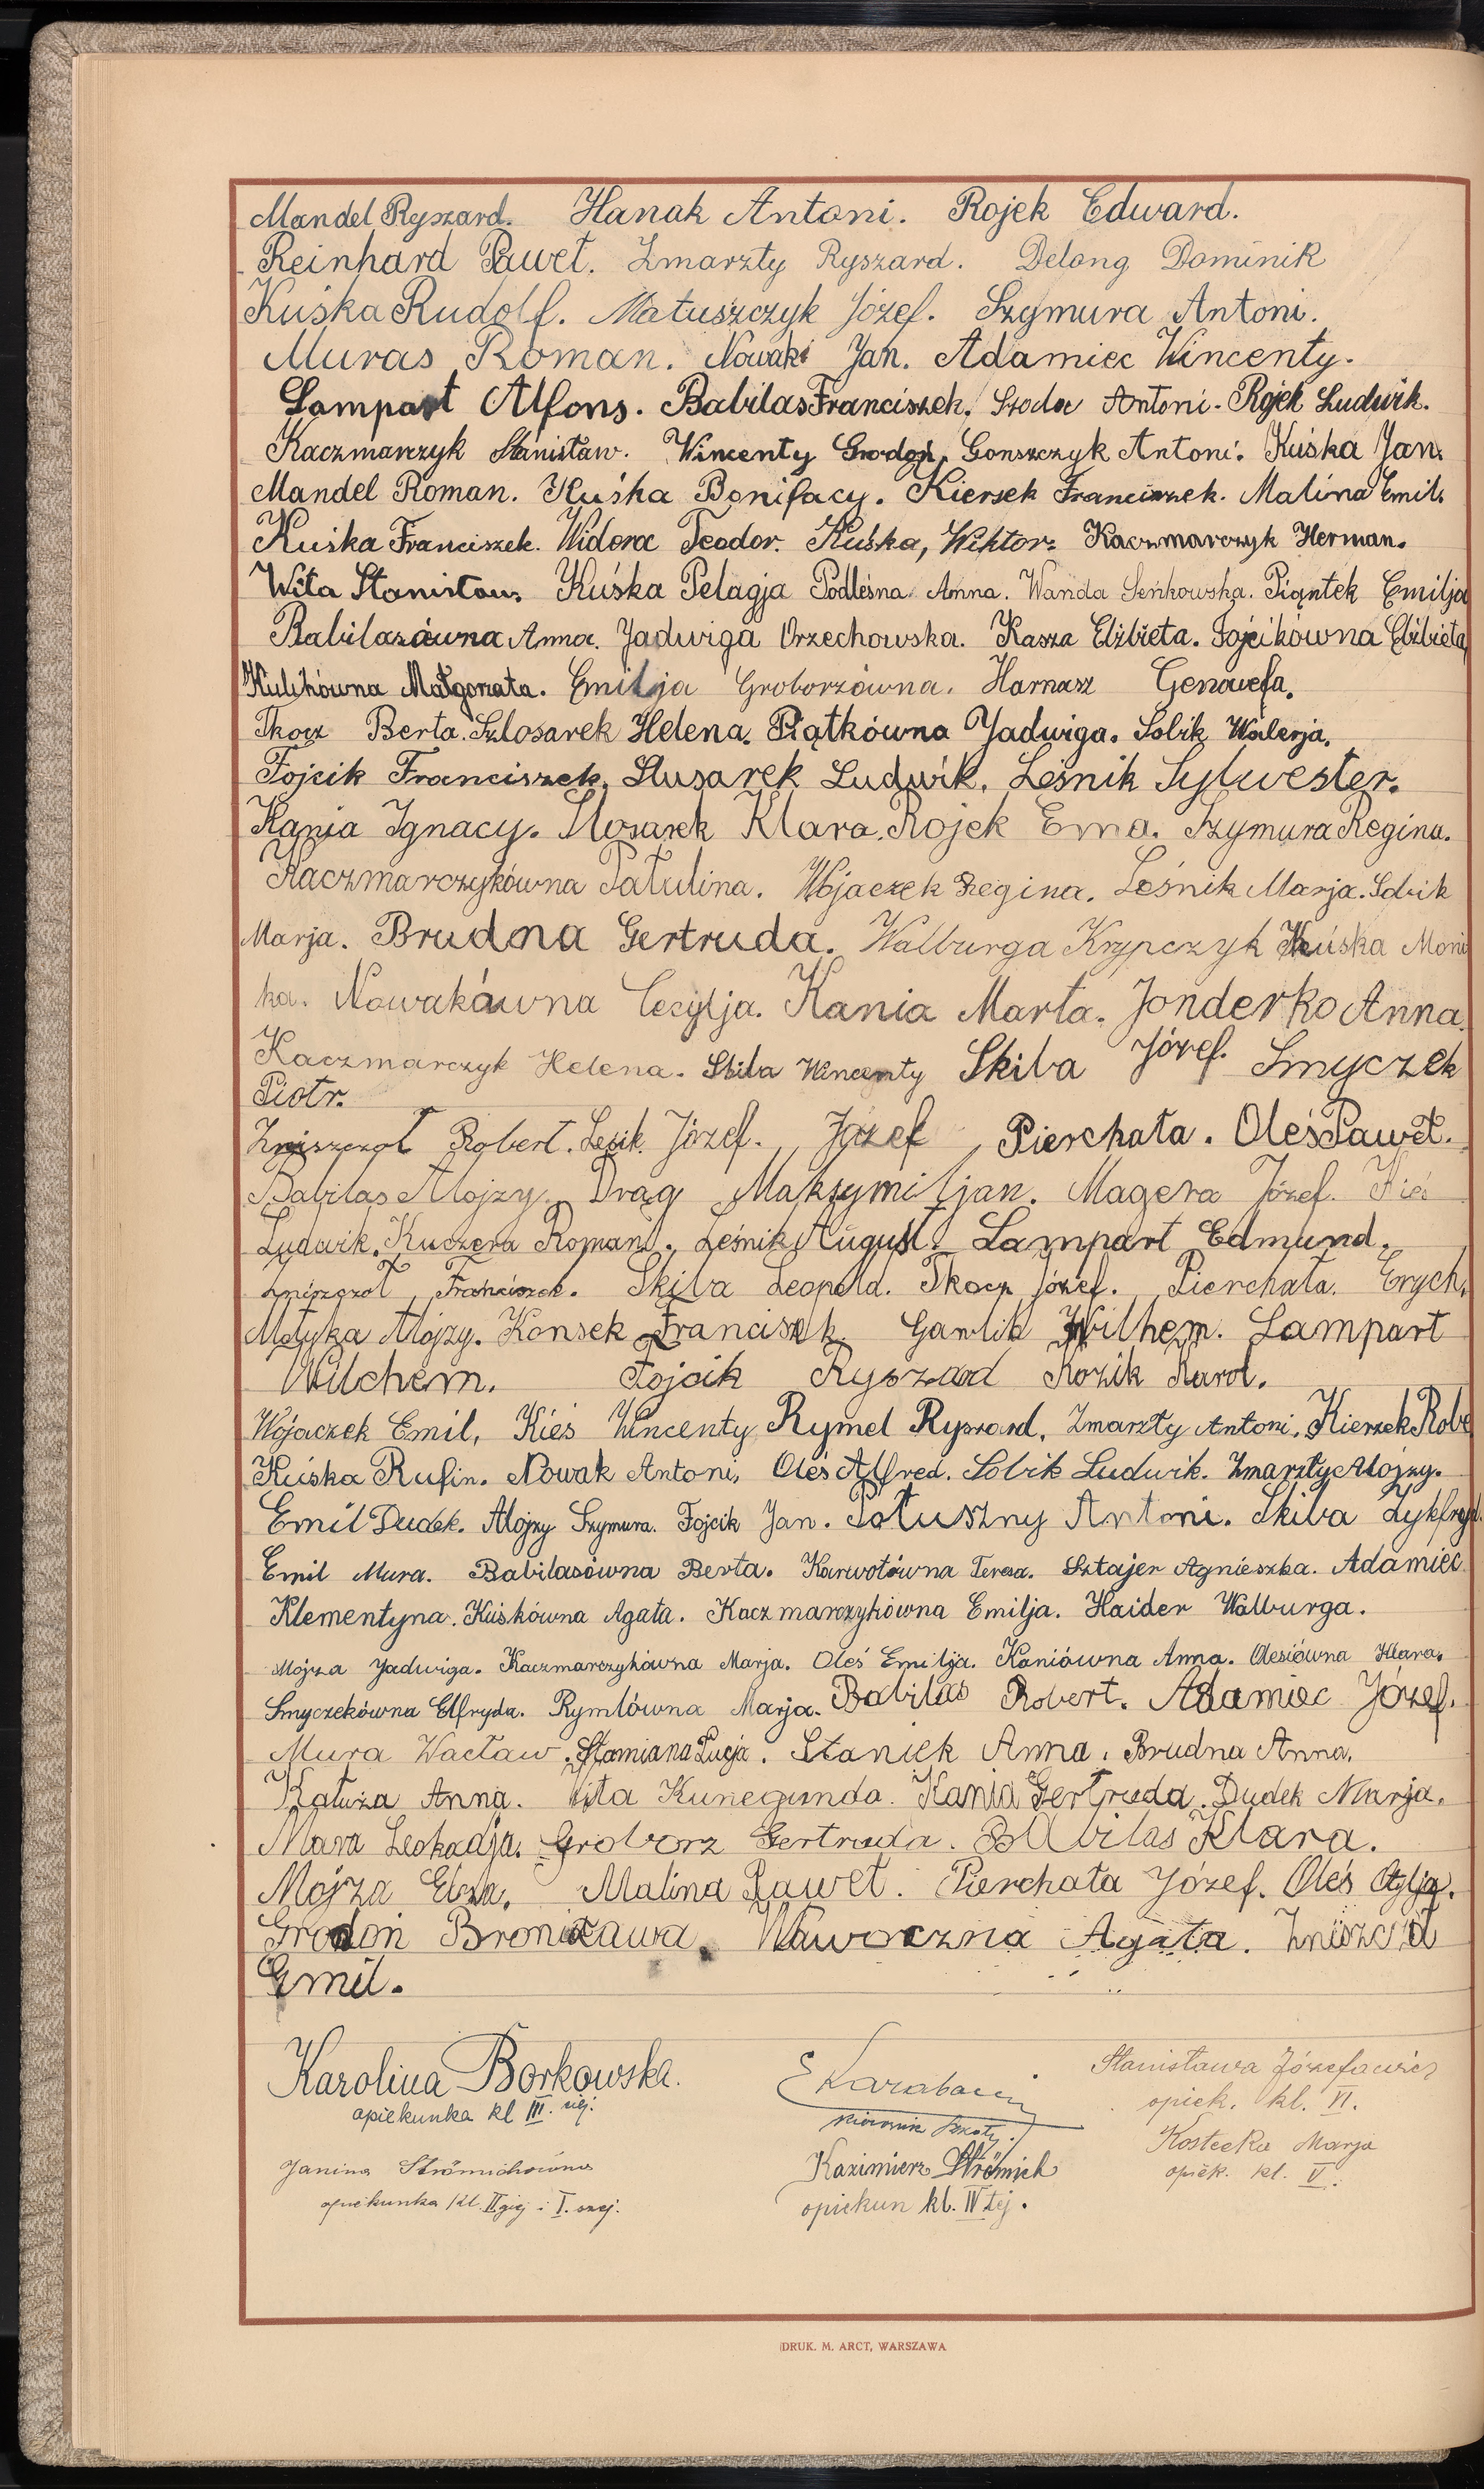 Mandel Ryszard. Hanak Antoni. Rojek Edward.
Reinhard Paweł. Zmarzły Ryszard. Delong Dominik
Kuśka Rudolf. Matuszczyk Józef. Szymura Antoni.
Muras Roman. Nowak Jan. Adamiec Wincenty.
Lampart Alfons. Babilas Franciszek. Szoda Antoni. Rojek Ludwik.
Kaczmarczyk Stanisław. Wincenty Grodoń. Gonszczyk Antoni. Kuśka Jan.
Mandel Roman. Kuśka Bonifacy. Kierzek Franciszek. Malina Emil.
Kuśka Franciszek. Widera Teodor. Kuśka, Wiktor. Kaczmarczyk Herman.
Wita Stanisław. Kuśka Pelagja Podleśna Anna. Wanda Seńkowska. Piątek Emilja
Babilasówna Anna. Jadwiga Orzechowska. Kasza Elżbieta. Fojcikówna Elżbieta
Małgorzata. Emilja Groborzówna. Harnasz Genowefa.
Tkocz Berta. Szlosarek Helena. Piątkówna Jadwiga. Sobik Walerja.
Fojcik Franciszek. Slusarek Ludwik. Leśnik Sylwester.
Kania Ignacy. Slosarek Klara. Rojek Erna. Szymura Regina.
Kaczmarczykówna Paŭlina. Wojaczek Regina. Leśnik Marja. Sobik
Marja. Brudna Gertruda. Walburga Krypczyk Kuśka Moni
ka. Nowakówna Cecylja. Kania Marta. Jonderko Anna.
Kaczmarczyk Helena. Skiba Wincenty Skiba Józef. Smyczek
Piotr.
Zniszczoł Robert. Lesik Józef. Józef Pierchała. Oleś Paweł.
Babilas Alojzy. Drąg Maksymiljan. Magera Józef. Kieś
Ludwik. Kuczera Roman. Leśnik August. Lampart Edmund.
Zniszczoł Franciszek. Skiba Leopold. Tkocz Józef. Pierchała Erych.
Motyka Alojzy. Konsek Franciszek. Gawlik Wilhem. Lampart
Wilchem. Fojcik Ryszard Kozik Karol.
Wojaczek Emil, Kieś Wincenty Rymel Ryszard. Zmarzły Antoni. Kierzek Robe
Kuśka Rufin. Nowak Antoni, Oleś Alfred. Sobik Ludwik. Zmarzły Alojzy.
Emil Dudek. Alojzy Szymura. Fojcik Jan. Połuszny Antoni. Skiba Zykfryd.
Emil Mura. Babilasówna Berta. Karwotówna Teresa. Sztajer Agnieszka. Adamiec
Klementyna. Kuśkówna Agata. Kaczmarczykówna Emilja. Haider Walburga.
Mojza Jadwiga. Kaczmarczykówna Marja. Oleś Emilja. Kaniówna Anna. Olesiówna Klara.
Smyczekówna Elfryda. Rymlówna Marja. Babilas Robert. Adamiec Józef.
Mura Wacław. Słomiana Łucja. Staniek Anna. Brudna Anna.
Kałuża Anna. Wita Kunegunda. Kania Gertruda. Dudek Marja.
Mara Leokadja. Groborz Gertruda. Babilas Klara.
Mojza Elza. Malina Paweł. Pierchała Józef. Oleś Otylja.
Grodoń Bronisława. Waworczna Agata. Zniszczoł
Emil.
Karolina Borkowska.
opiekunka kl III. ciej.
E Karabacin
kierownik szkoły.
Stanisława Józefowicz
opiek. kl. VI.
Kostecka Marja
opiek. kl. V.
Janina Strömichówna
opiekunka kl. II giej i I. szej.
Kazimierz Strömich
opiekun kl. IV tej.
DRUK. M. ARCT, WARSZAWA